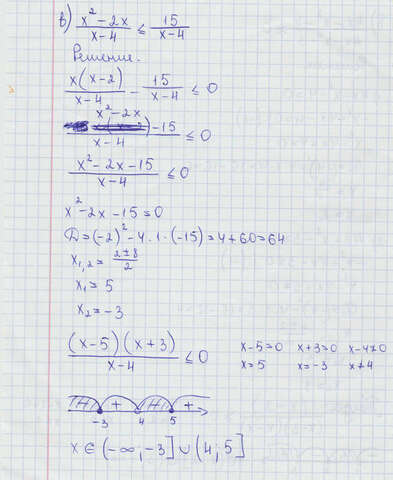 в) (x² - 2x)/(x - 4) ≤ 15/(x - 4)
Решение.
x(x - 2)/(x - 4) - 15/(x - 4) ≤ 0
(x² - 2x - 15)/(x - 4) ≤ 0
(x² - 2x - 15)/(x - 4) ≤ 0
x² - 2x - 15 = 0
D = (-2)² - 4 · 1 · (-15) = 4 + 60 = 64
x₁,₂ = (2 ± 8)/2
x₁ = 5
x₂ = -3
(x - 5)(x + 3)/(x - 4) ≤ 0
x - 5 = 0 x + 3 = 0 x - 4 ≠ 0
x = 5 x = -3 x ≠ 4
- + - +
-3 4 5
x ∈ (-∞; -3] ∪ (4; 5]